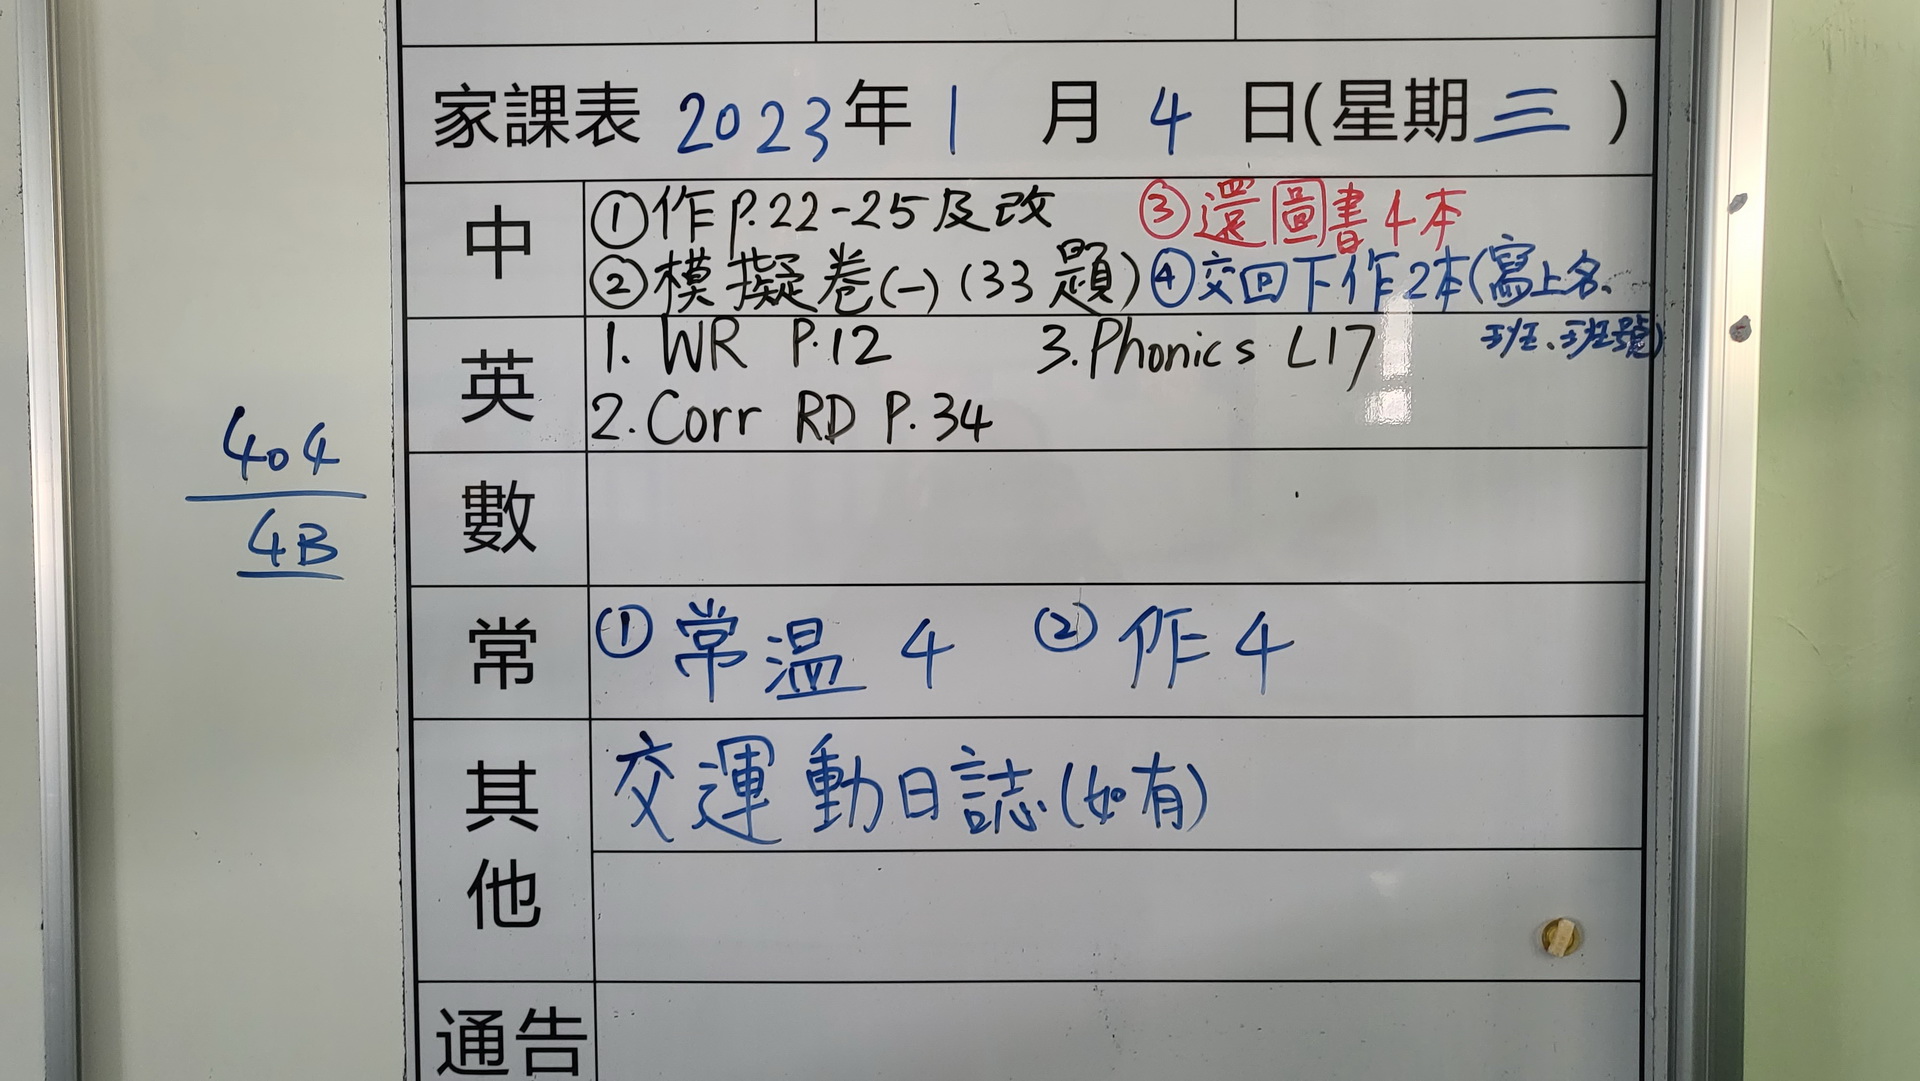 家課表 2023年1月4日(星期三)
中
①作P.22-25及改 ③還圖書4本
②模擬卷(一)(33題) ④交回下作2本(寫上名、
班、班號)
英
1. WR P.12 3. Phonics L17
2. Corr RD P.34
數
常
①常温 4 ②作4
其他
交運動日誌(如有)
通告
404
4B